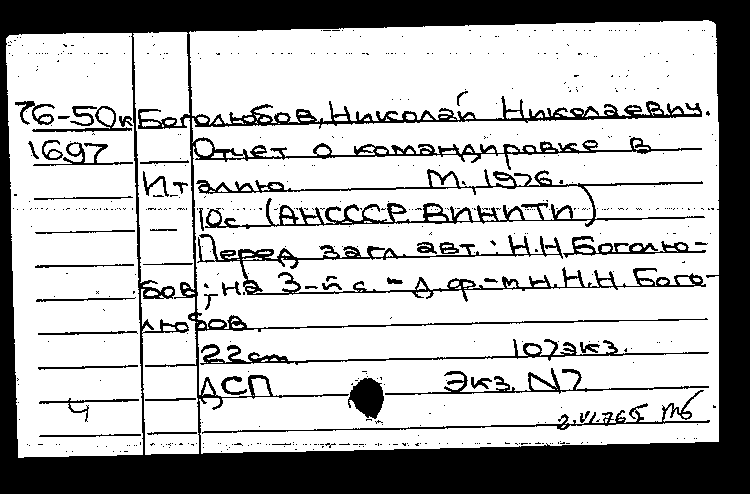 76-50к Боголюбов, Николай Николаевич.
1697 Отчет о командировке в
Италию. М., 1976.
10с. (АНСССР. ВИНИТИ)
Перед загл. авт.: Н.Н.Боголю-
бов; на 3-й с. - д.ф.-м.н. Н.Н. Бого-
любов.
22см 107экз.
ДСП Экз. N7
4